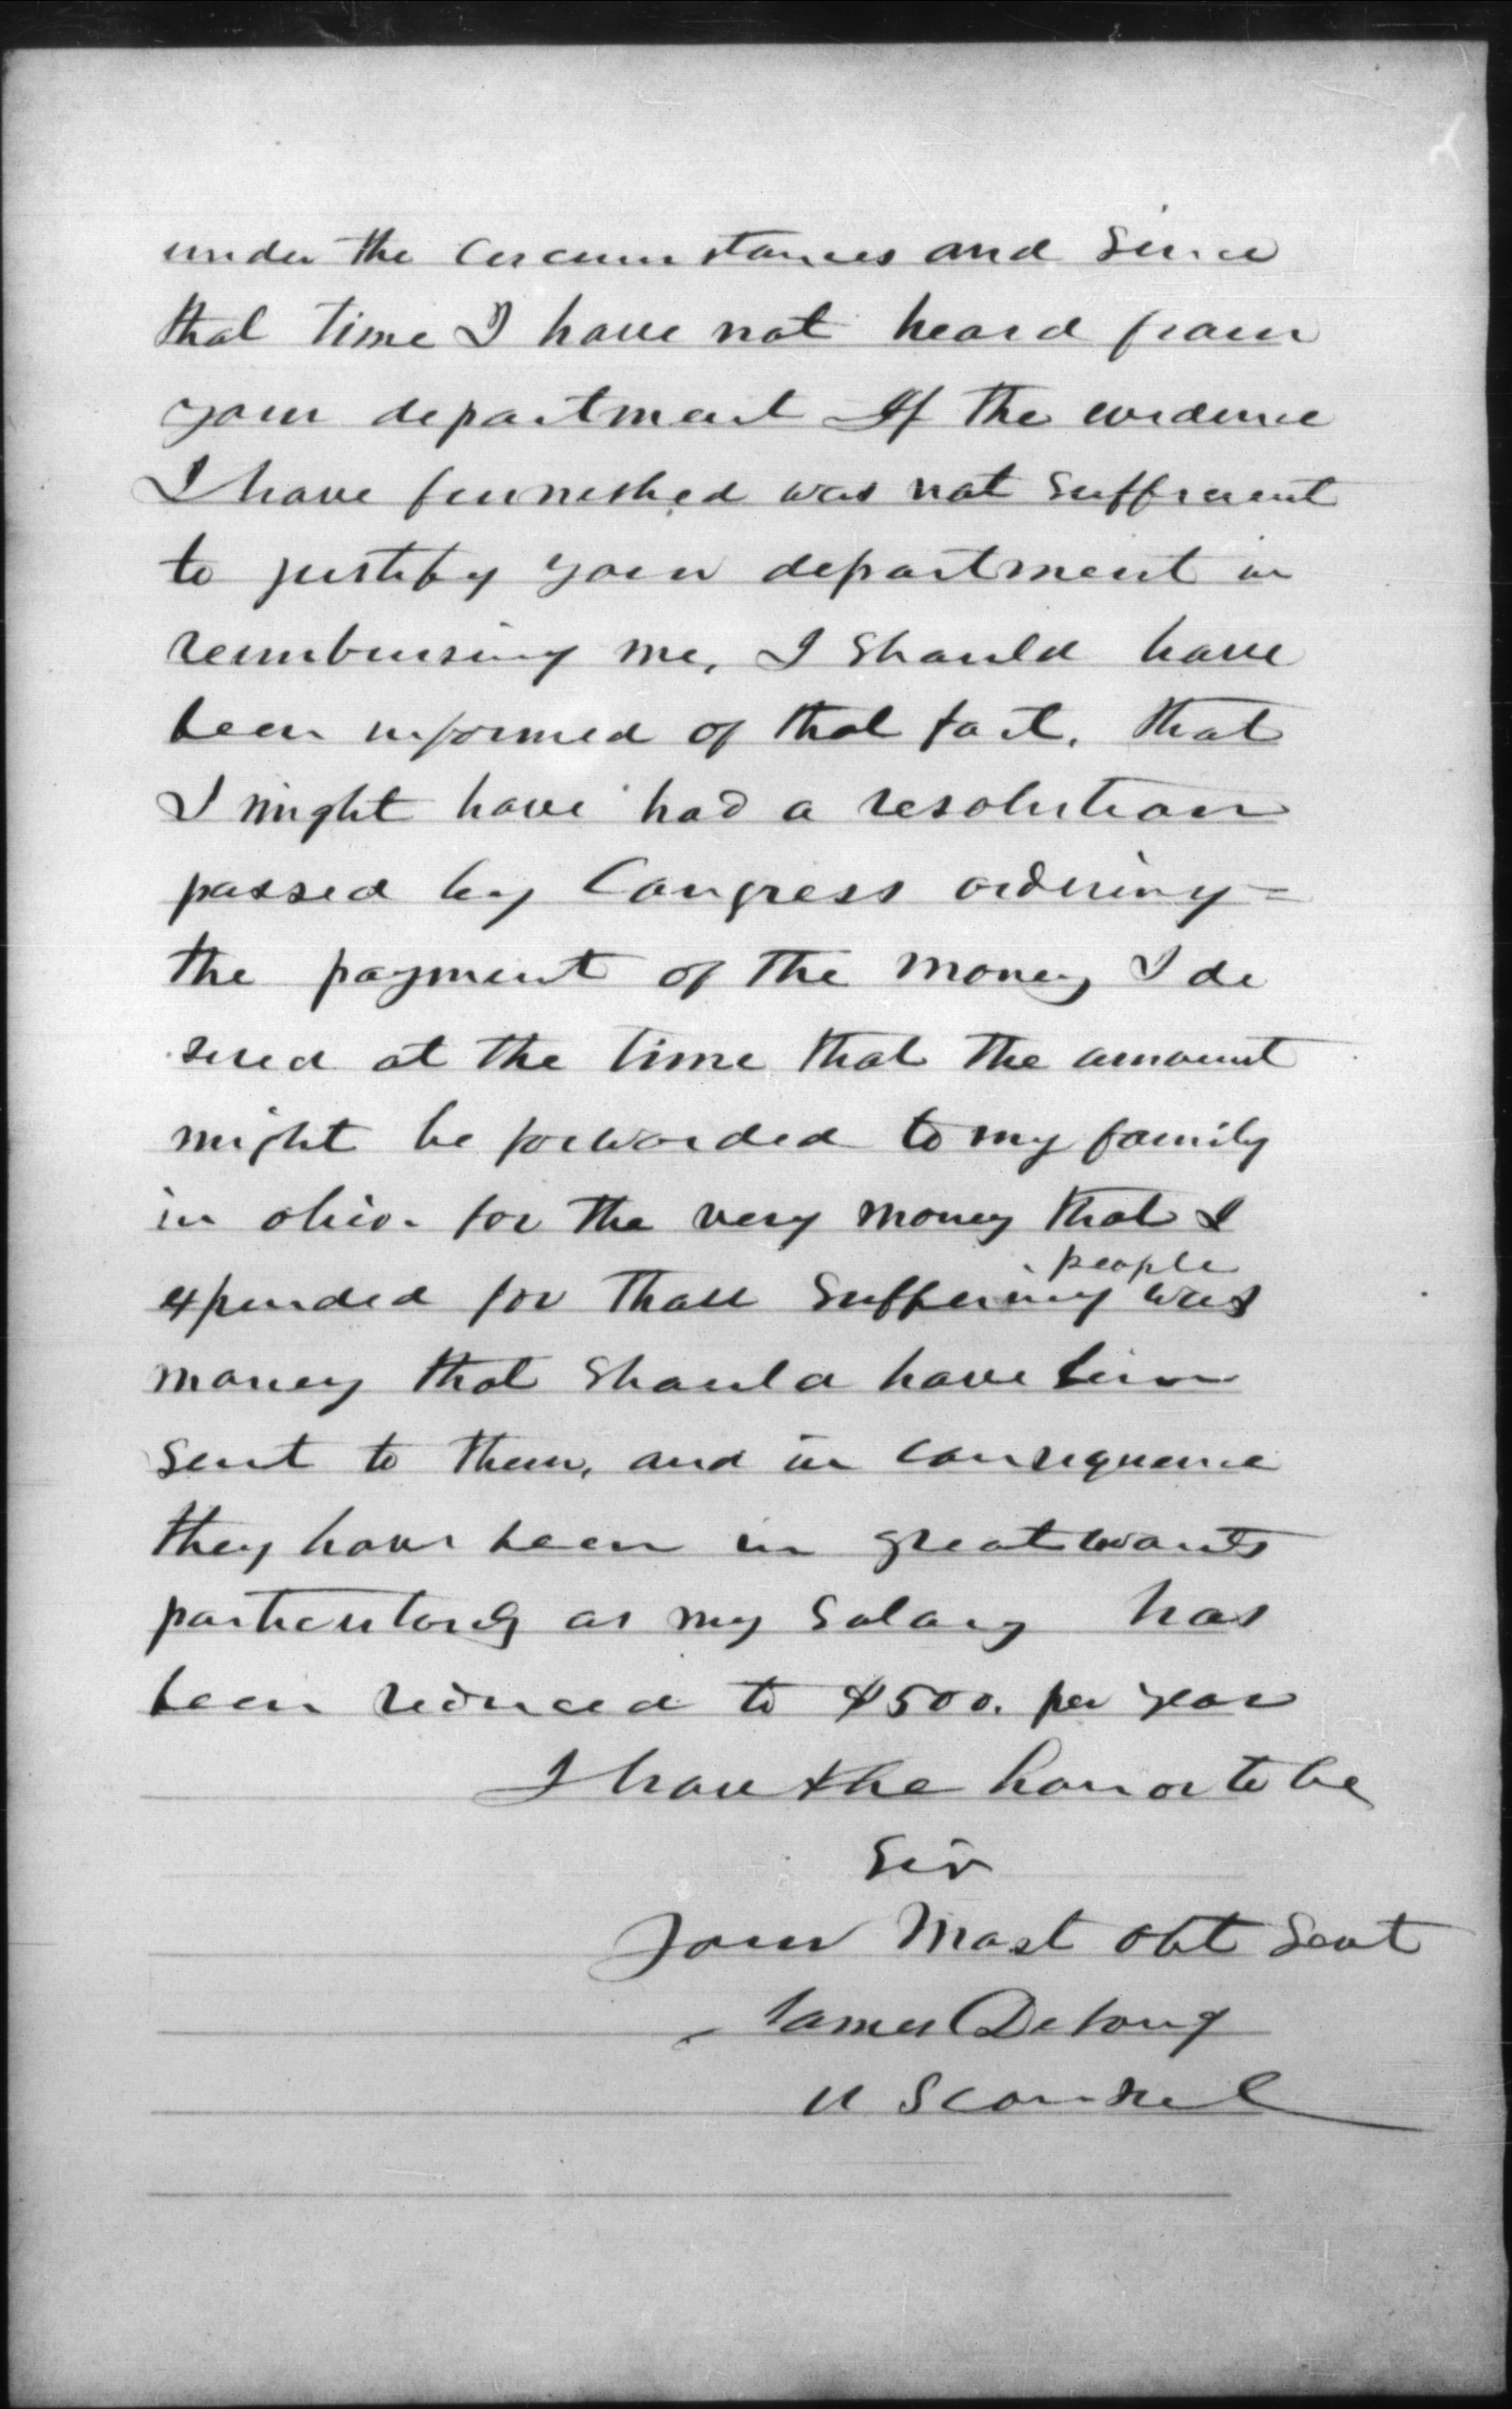 under the circumstances and since
that time I have not heard from
your department If the evidence
I have furnished was not sufficient
to justify your department in
reimbursing me, I should have
been informed of that fact, that
I might have had a resolution
passed by Congress ordering =
the payment of the money I de
sired at the time that the amount
might be forwarded to my family
in ohio. for the very money that I
people
expended for those suffering was
money that should have been
sent to them, and in consequence
they have been in great wants
particularly as my salary has
been reduced to $500. per year
I have the honor to be
Sir
Your Most Obt Servt
James DeLong
U S Consul